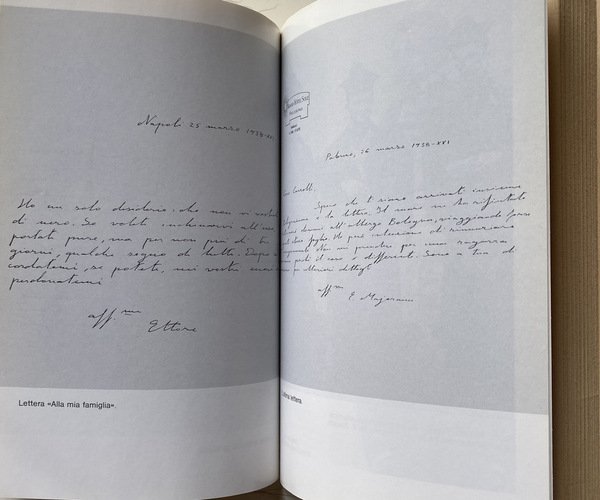 Napoli 25 marzo 1938-XVI
Ho un solo desiderio: che non vi vestiate
di nero. Se volete inchinarvi all'uso,
portate pure, ma per non più di tre
giorni, qualche segno di lutto. Dopo
cordatemi, se potete, nei vostri cuori e
perdonatemi
aff.mo
Ettore
Lettera «Alla mia famiglia».
Palermo, 26 marzo 1938-XVI
Caro Carrelli,
Spero che ti siano arrivati insieme
telegramma e la lettera. Il mare mi ha rifiutato
domani all'albergo Bologna, viaggiando forse
questo foglio. Ho però intenzione di rinunciare
insegnamento. Non mi prendere per una ragazza
perché il caso è differente. Sono a tua di
per ulteriori dettagli
aff.mo
E. Majorana
lettera.